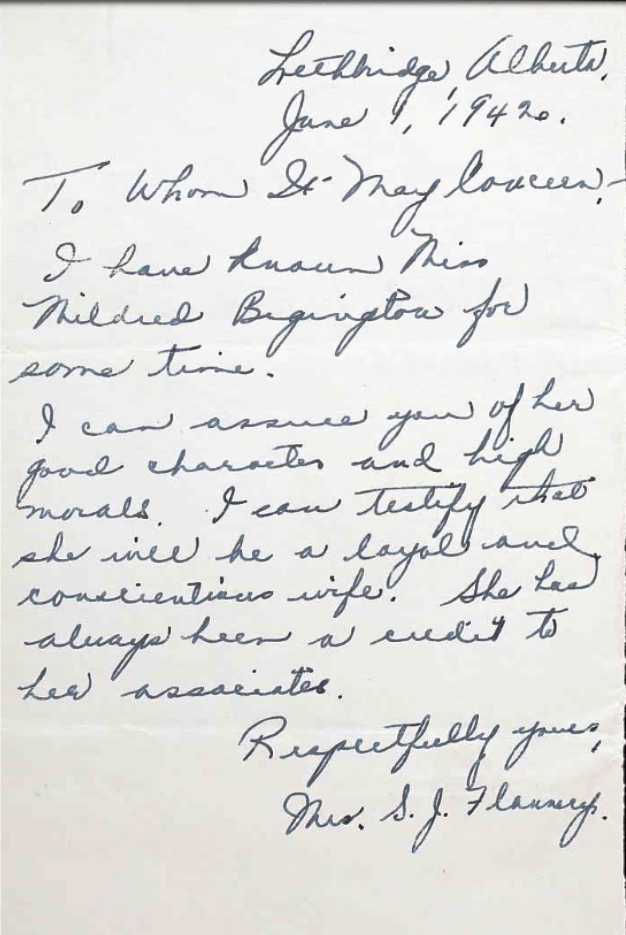 Lethbridge, Alberta.
June 1, 1942.
To Whom It May Concern,-
I have known Miss
Mildred for
some time.
I can assure you of her
good character and high
morals. I can testify that
she will be a loyal and
conscientious wife. She has
always been a credit to
her associates.
Respectfully yours,
Mrs. S. J. Flannery.